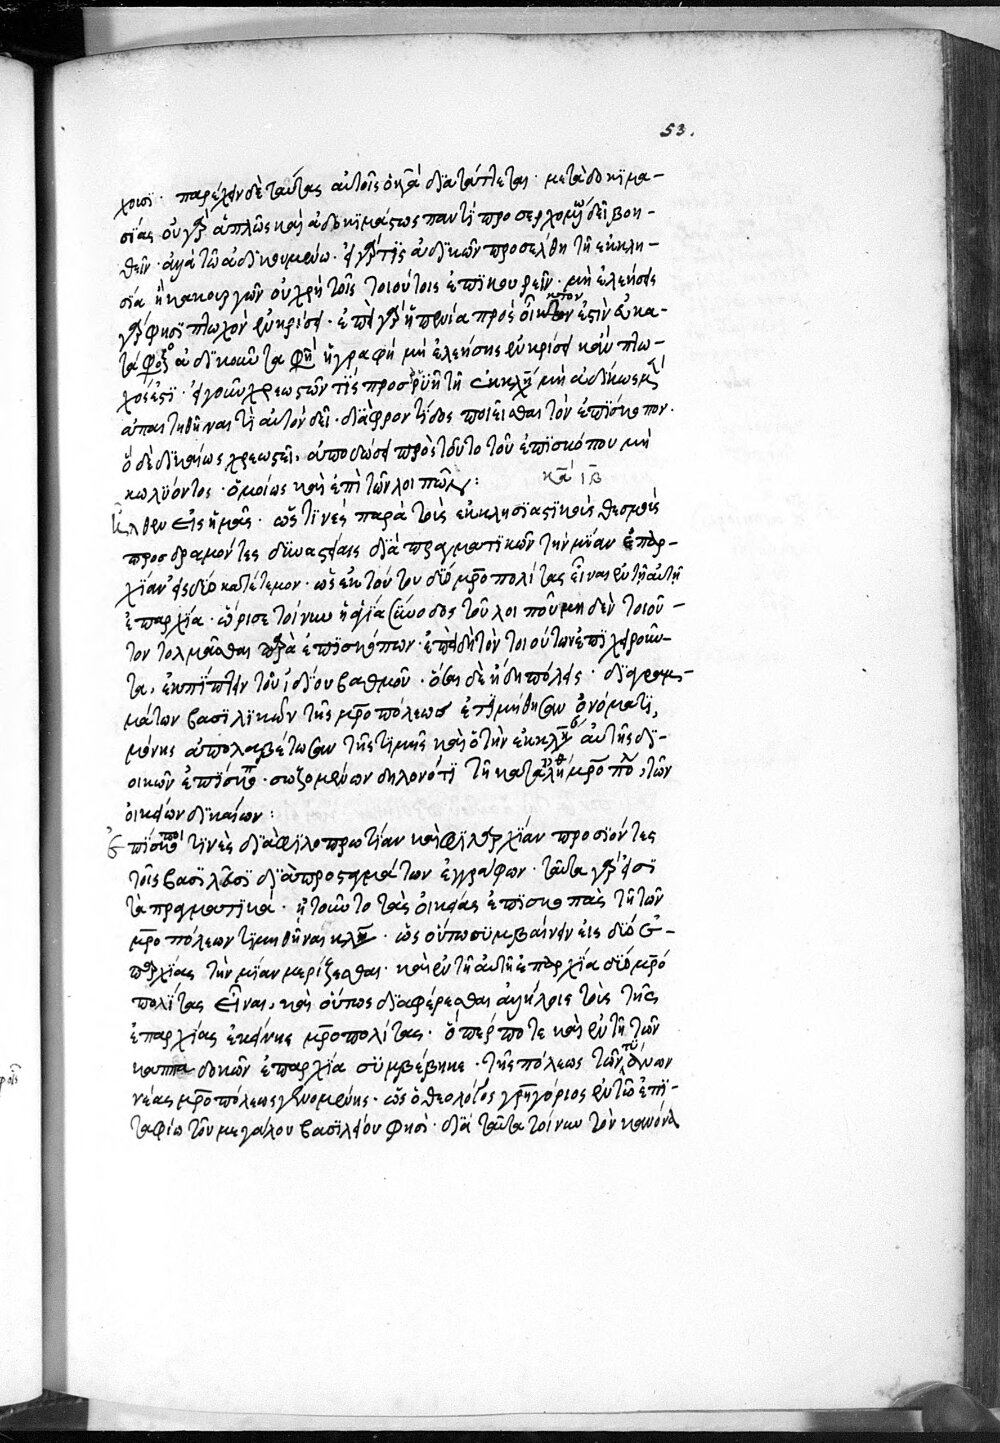 53.
χουσι · παρέχειν δὲ ταύτας αὐτοῖς ὁ κανὼν διατάττεται · μετὰ δοκιμα-
σίας οὐ γὰρ ἁπλῶς καὶ ἀδοκιμάστως παντὶ προσερχομένῳ δεῖ βοη-
θεῖν · ἀλλὰ τῷ ἀδικουμένῳ · εἰ γάρ τις ἀδικῶν προσέλθη τῇ ἐκκλη-
σία ἢ κακουργῶν οὐ χρὴ τοῖς τοιούτοις ἐπικουρεῖν · μὴ ἐλεήσεις
γάρ φησι πτωχὸν ἐν κρίσει · ἐπεὶ γὰρ ἡ πενία πρὸς οἶκτον ἐστὶν
ἀδικοῦντα φησὶ ἡ γραφὴ μὴ ἐλεήσης ἐν κρίσει κἂν πτω-
χός ἐστι · εἰ γοῦν χρεωστῶν τις προσρυῆ τῇ ἐκκλησίᾳ μὴ ἀδίκως
ἀπαιτηθῆναί τι αὐτὸν δεῖ · διὰ φροντίδος ποιεῖσθαι τὸν ἐπίσκοπον ·
ὃ δὲ δικαίως χρεωστεῖ, ἀποδώσει πρὸς τοῦτο τοῦ ἐπισκόπου μὴ
κωλύοντος · ὁμοίως καὶ ἐπὶ τῶν λοιπῶν : κα ιβ
Ἦλθεν εἰς ἡμᾶς · ὥς τινες παρὰ τοὺς ἐκκλησιαστικοὺς θεσμοὺς
προσδραμόντες δυναστείαις διὰ πραγματικῶν τὴν μίαν ἐπαρ-
χίαν εἰς δύο κατέτεμον · ὡς ἐκ τούτου δύο μροπολίτας εἶναι ἐν τῇ αὐτῇ
ἐπαρχία · ὥρισε τοίνυν ἡ ἁγία σύνοδος τοῦ λοιποῦ μηδὲν τοιοῦ-
τον τολμᾶσθαι παρὰ ἐπισκόπων · ἐπεὶ δὴ τὸν τοιούτων ἐπιχειροῦν-
τα, ἐκπίπτειν τοῦ ἰδίου βαθμοῦ · ὅσαι δὲ ἤδη πόλεις · διὰ γραμ-
μάτων βασιλικῶν τῆς μροπόλεως ἐτιμήθησαν ὀνόματι,
μόνης ἀπολαβέτωσαν τῆς τιμῆς καὶ ὁ τὴν ἐκκλησίαν αὐτῆς δι-
οικῶν ἐπίσκοπος · σωζομένων δηλονότι τῇ κατὰ ἀλήθειαν μροπόλει, τῶν
οἰκείων δικαίων :
Ἐπίσκοποι τινὲς διὰ φιλοπρωτίαν καὶ φιλαρχίαν προσιόντες
τοῖς βασιλεῦσι διὰ προσταγμάτων ἐγγράφων · ταῦτα γάρ εἰσι
τὰ πραγματικά · ᾐτοῦντο τὰς οἰκείας ἐπισκοπὰς τῇ τῶν
μροπόλεων τιμηθῆναι κλήσει · ὡς οὕπω συμβαίνειν εἰς δύο ἐ-
παρχίας τὴν μίαν μερίζεσθαι · καὶ ἐν τῇ αὐτῇ ἐπαρχία δύο μρο
πολίτας εἶναι, καὶ οὕπως διαφέρεσθαι ἀλλήλοις τοὺς τῆς
ἐπαρχίας ἐκείνης μροπολίτας · ὅπερ ποτὲ καὶ ἐν τῇ τῶν
καππαδοκῶν ἐπαρχία συμβέβηκε · τῆς πόλεως τῶν τυάνων
νέας μροπόλεως γενομένης · ὡς ὁ θεολόγος γρηγόριος ἐν τῷ ἐπι-
ταφίω τοῦ μεγάλου βασιλείου φησί · διὰ ταῦτα τοίνυν τὸν κανόνα